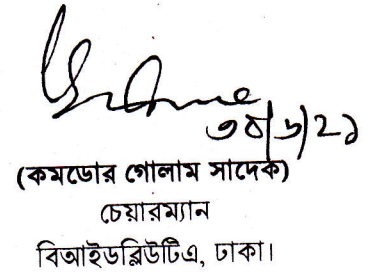 ৩০/৬/২১
(কমডোর গোলাম সাদেক)
চেয়ারম্যান
বিআইডব্লিউটিএ, ঢাকা।